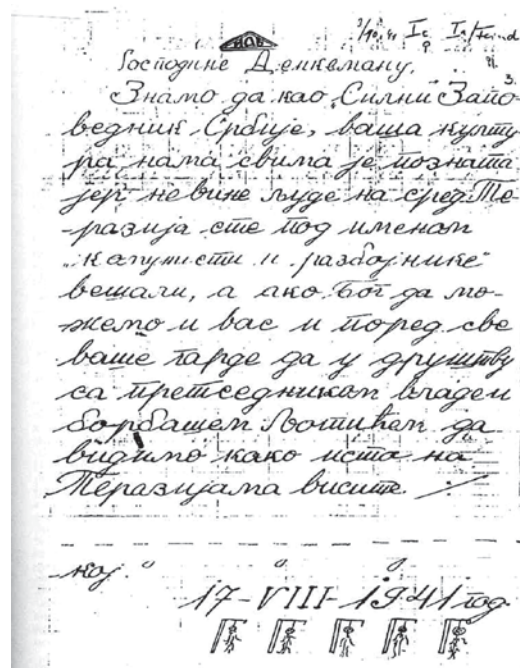 Ic Ia/Feind
3.
Господине Денкеману,
Знамо да као Силни Запо-
ведник Србије, ваша култу
ра нама свима је позната
јер невине људе на сред Те-
-разија сте под именом
и разбојнике"
вешали, а ако Бог да мо-
жемо и вас и поред све
ваше гарде да у друштву
са претседником владем
борбашем Љотићем да
видимо како исто на
Теразијама висите.
кој.
17-VIII-1941 год.